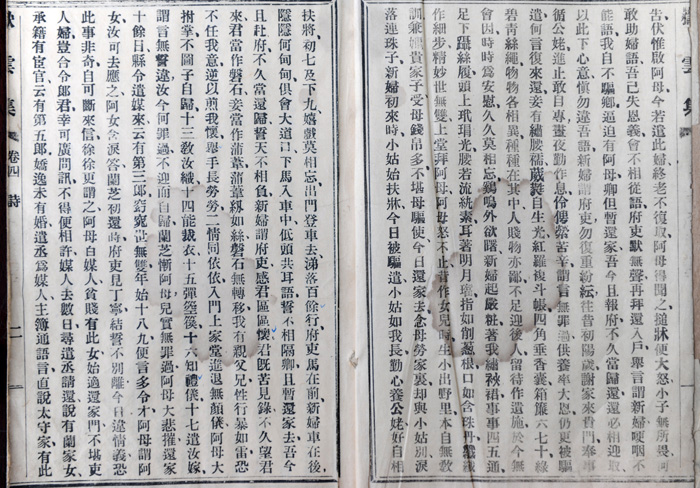 告伏惟啟阿母今若遣此婦終老不復取阿母得聞之搥牀便大怒小子無所畏何
敢助婦語吾已失恩義會不相從語府吏默無聲再拜還入戶舉言謂新婦哽咽不
能語我自不驅卿逼迫有阿母卿但暫還家吾今且報府不久當歸還還必相迎取
以此下心意慎勿違吾語新婦謂府吏勿復重紛紜往昔初陽歲謝家來貴門奉事
循公姥進止敢自專晝夜勤作息伶俜縈苦辛謂言無罪過供養卒大恩仍更被驅
遣何言復來還妾有繡腰襦葳蕤自生光紅羅複斗帳四角垂香囊箱簾六七十綠
碧青絲繩物物各相異種種在其中人賤物亦鄙不足迎後人留待作遣施於今無
會因時時爲安慰久久莫相忘鷄鳴外欲曙新婦起嚴妝著我繡裌裙事事四五通
足下躡絲履頭上玳瑁光腰若流紈素耳著明月璫指如削蔥根口如含珠丹纖纖
作細步精妙世無雙上堂拜阿母阿母怒不止昔作女兒時生小出野里本自無教
訓兼媿貴家子受母錢帛多不堪母驅使今日還家去念母勞家裏却與小姑別淚
落連珠子新婦初來時小姑始扶牀今日被驅遣小姑如我長勤心養公姥好自相
扶將初七及下九嬉戲莫相忘出門登車去涕落百餘行府吏馬在前新婦車在後
隱隱何甸甸俱會大道口下馬入車中低頭共耳語誓不相隔卿且暫還家去吾今
且赴府不久當還歸誓天不相負新婦謂府吏感君區區懷君旣若見錄不久望君
來君當作磐石妾當作蒲葦蒲葦紉如絲磐石無轉移我有親父兄性行暴如雷恐
不任我意逆以煎我懷舉手長勞勞二情同依依入門上家堂進退無顏儀阿母大
拊掌不圖子自歸十三教汝織十四能裁衣十五彈箜篌十六知禮儀十七遣汝嫁
謂言無誓違汝今何罪過不迎而自歸蘭芝慚阿母兒實無罪過阿母大悲摧還家
十餘日縣令遣媒來云有第三郎窈窕世無雙年始十八九便言多令才阿母謂阿
女汝可去應之阿女含淚答蘭芝初還時府吏見丁寧結誓不別離今日違情義恐
此事非奇自可斷來信徐徐更謂之阿母白媒人貧賤有此女始適還家門不堪吏
人婦豈合令郎君幸可廣問訊不得便相許媒人去數日尋遣丞請還說有蘭家女
承籍有宦官云有第五郎嬌逸未有婚遣丞爲媒人主簿通語言直說太守家有此
雲集 卷四 詩 二